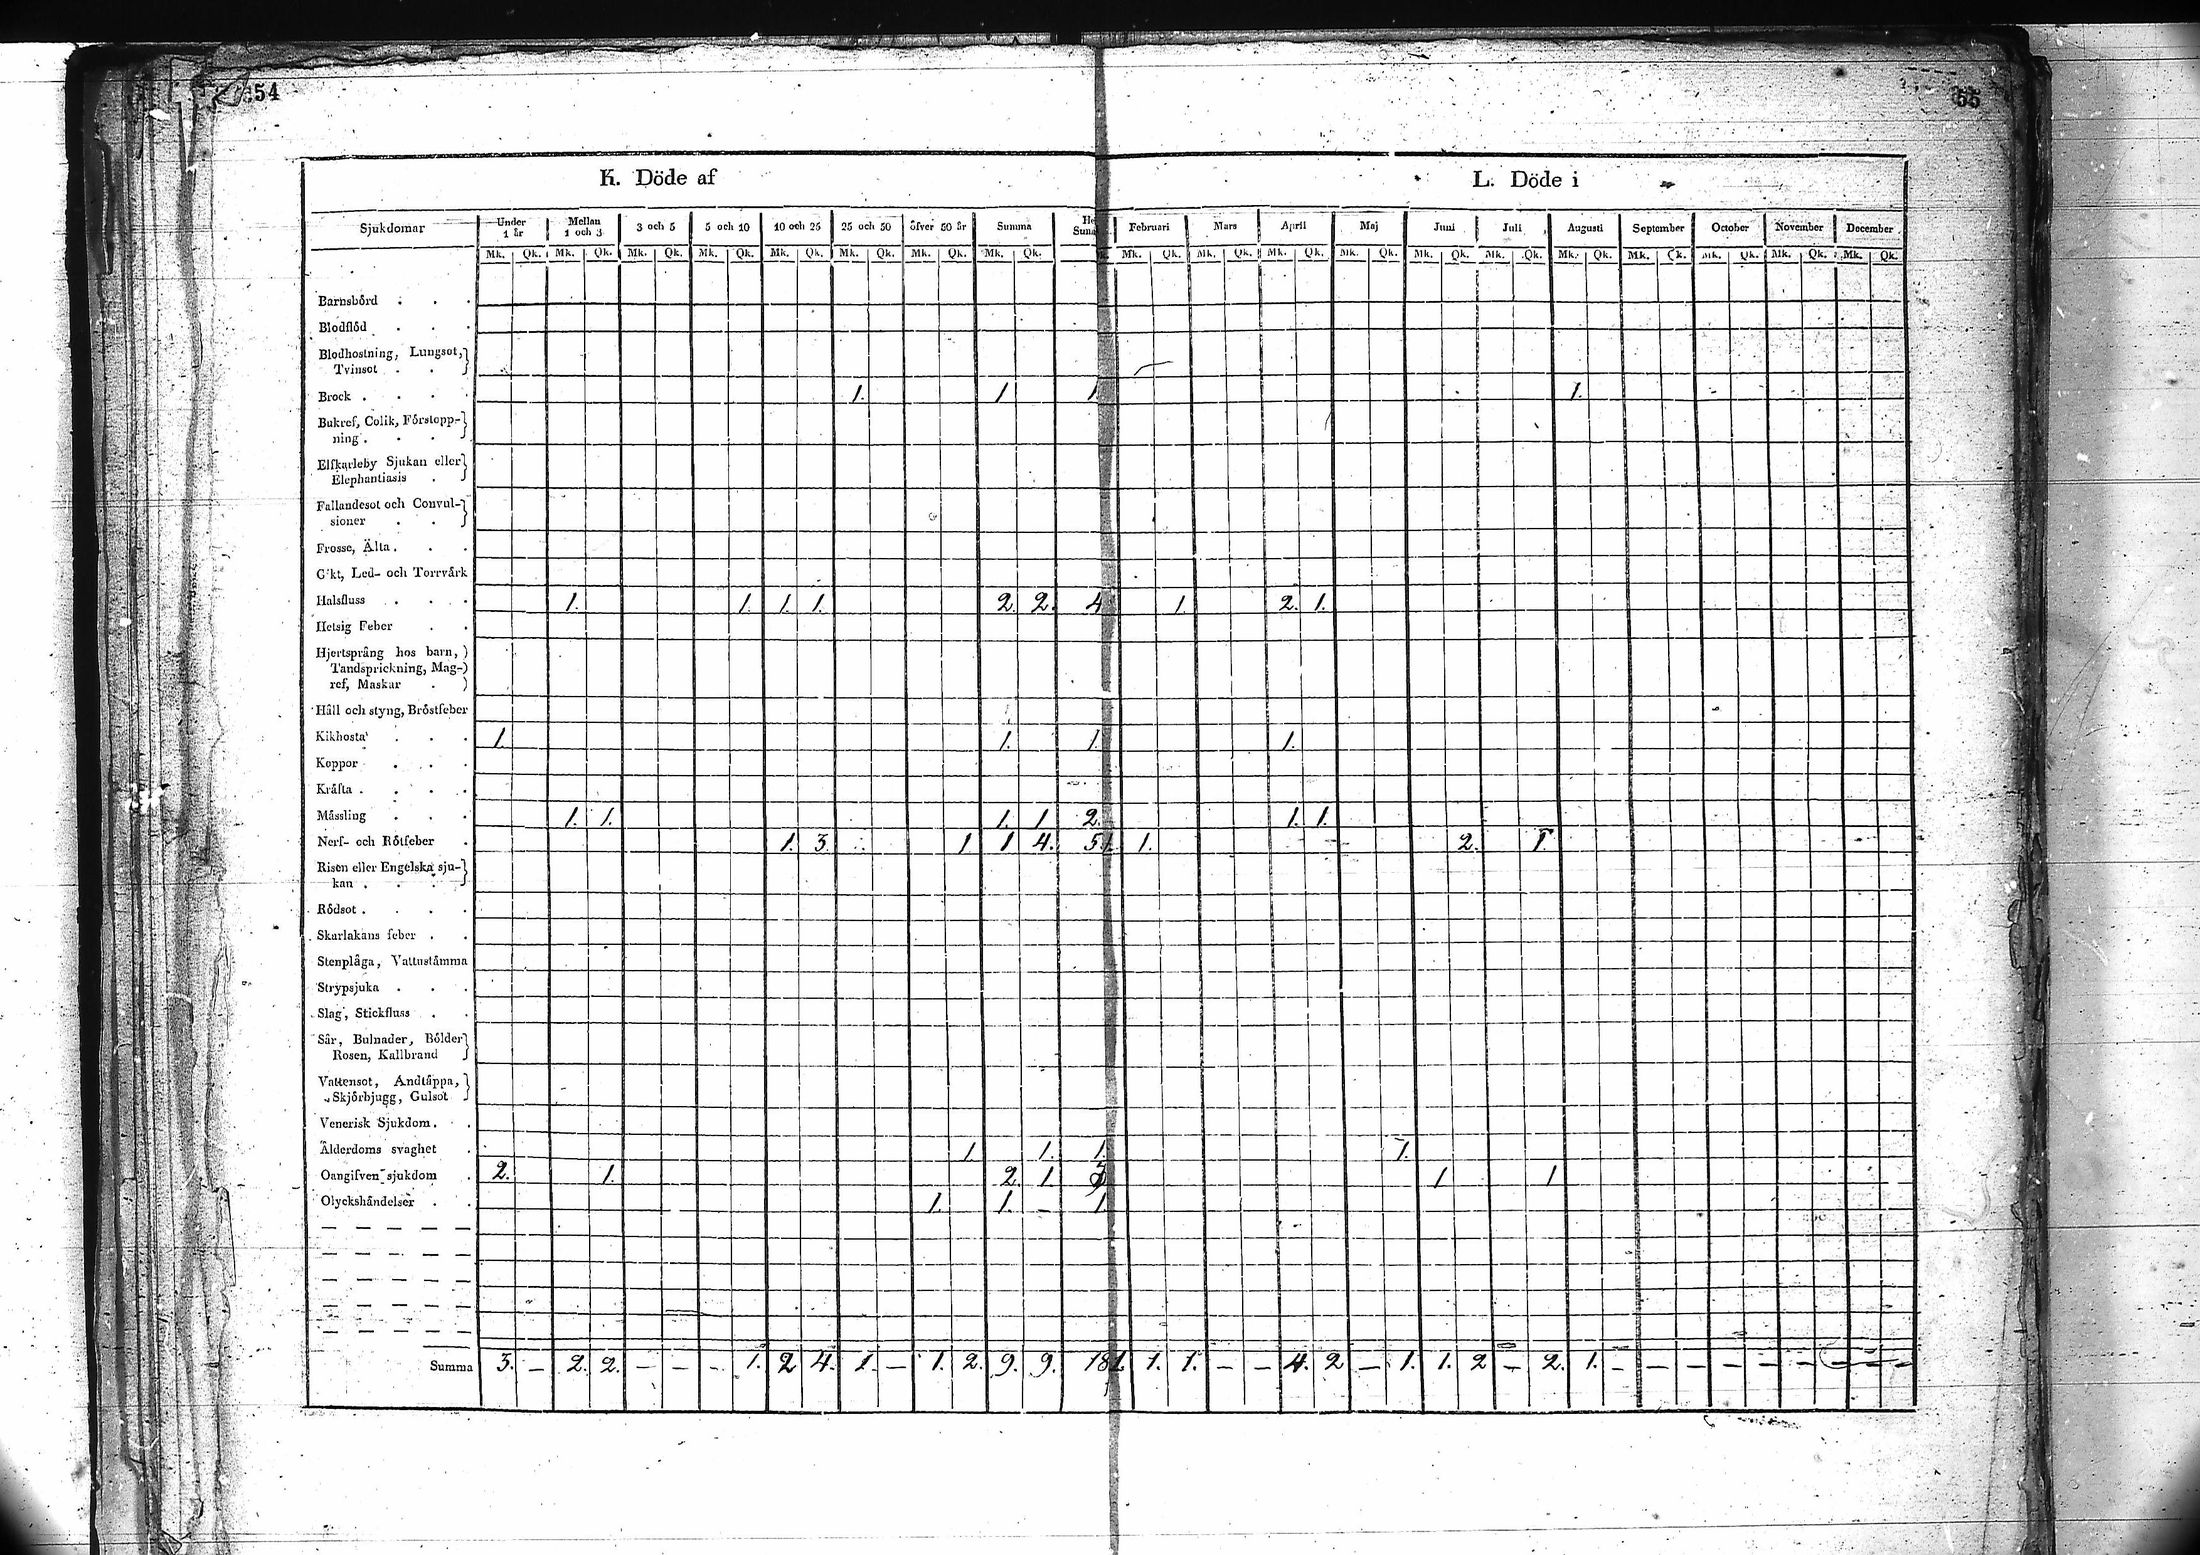 54
55
K. Döde af
L. Döde i
Sjukdomar Under 1 år Mellan 1 och 3 3 och 5 5 och 10 10 och 25 25 och 50 öfver 50 år Summa Februari Mars April Maj Juni Juli Augusti September October November December
Mk. Qk. Mk. Qk. Mk. Qk. Mk. Qk. Mk. Qk. Mk. Qk. Mk. Qk. Mk. Qk. Mk. Qk. Mk. Qk. Mk. Qk. Mk. Qk. Mk. Qk. Mk. Qk. Mk. Qk. Mk. Qk. Mk. Qk. Mk. Qk. Mk. Qk.
Barnsbörd . . .
Blodflöd . . .
Blodhostning, Lungsot,
Tvinsot . .
Brock . . . . 1. 1 1 1.
Bukref, Colik, Förstopp-
ning . . .
Elfkarleby Sjukan eller
Elephantiasis .
Fallandesot och Convul-
sioner . .
Frosse, Älta . . .
Gikt, Led- och Torrvärk
Halsfluss . . . 1. 1. 1. 1. 2. 2. 4 1 2. 1.
Hetsig Feber . .
Hjertsprång hos barn,
Tandsprickning, Mag-
ref, Maskar .
Håll och styng, Bröstfeber
Kikhosta . . . 1. 1. 1. 1.
Koppor . . .
Kräfta . . . .
Måssling . . . 1. 1. 1. 1. 2. 1. 1.
Nerf- och Rötfeber . 1. 3. 1 1 4. 5. 1. 1. 2. 1.
Risen eller Engelska sju-
kan . . .
Rödsot . . . .
Skarlakans feber . .
Stenplåga, Vattustämma
Strypsjuka . . .
Slag, Stickfluss . .
Sår, Bulnader, Bölder
Rosen, Kallbrand
Vattensot, Andtäppa,
Skjörbjugg, Gulsot
Venerisk Sjukdom . .
Ålderdoms svaghet . 1 1. 1. 1.
Oangifven sjukdom . 2. 1. 2. 1. 3 1 1
Olyckshändelser . . 1. 1. 1.
Summa 3. – 2. 2. – – – 1. 2 4. 1. – 1. 2. 9. 9. 18 1. 1. 1. – – 4. 2 – 1. 1. 2 – 2. 1. – – – – – – – – –